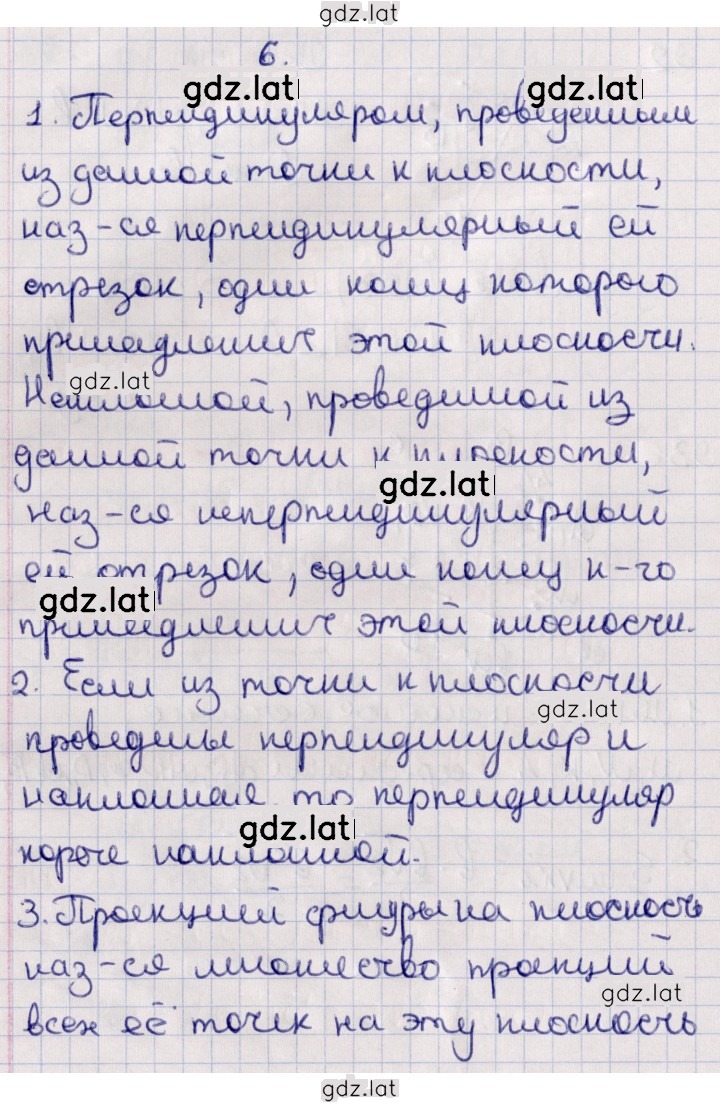 gdz.lat
6.
gdz.lat
gdz.lat
1. Перпендикуляром, проведенным
из данной точки к плоскости,
наз-ся перпендикулярный ей
отрезок, один конец которого
принадлежит этой плоскости.
gdz.lat
Наклонной, проведенной из
данной точки к плоскости,
gdz.lat
наз-ся неперпендикулярный
ей отрезок, один конец к-го
gdz.lat
принадлежит этой плоскости.
2. Если из точки к плоскости
gdz.lat
проведены перпендикуляр и
наклонная то перпендикуляр
gdz.lat
короче наклонной.
3. Проекцией фигуры на плоскость
наз-ся множество проекций
gdz.lat
всех её точек на эту плоскость
gdz.lat